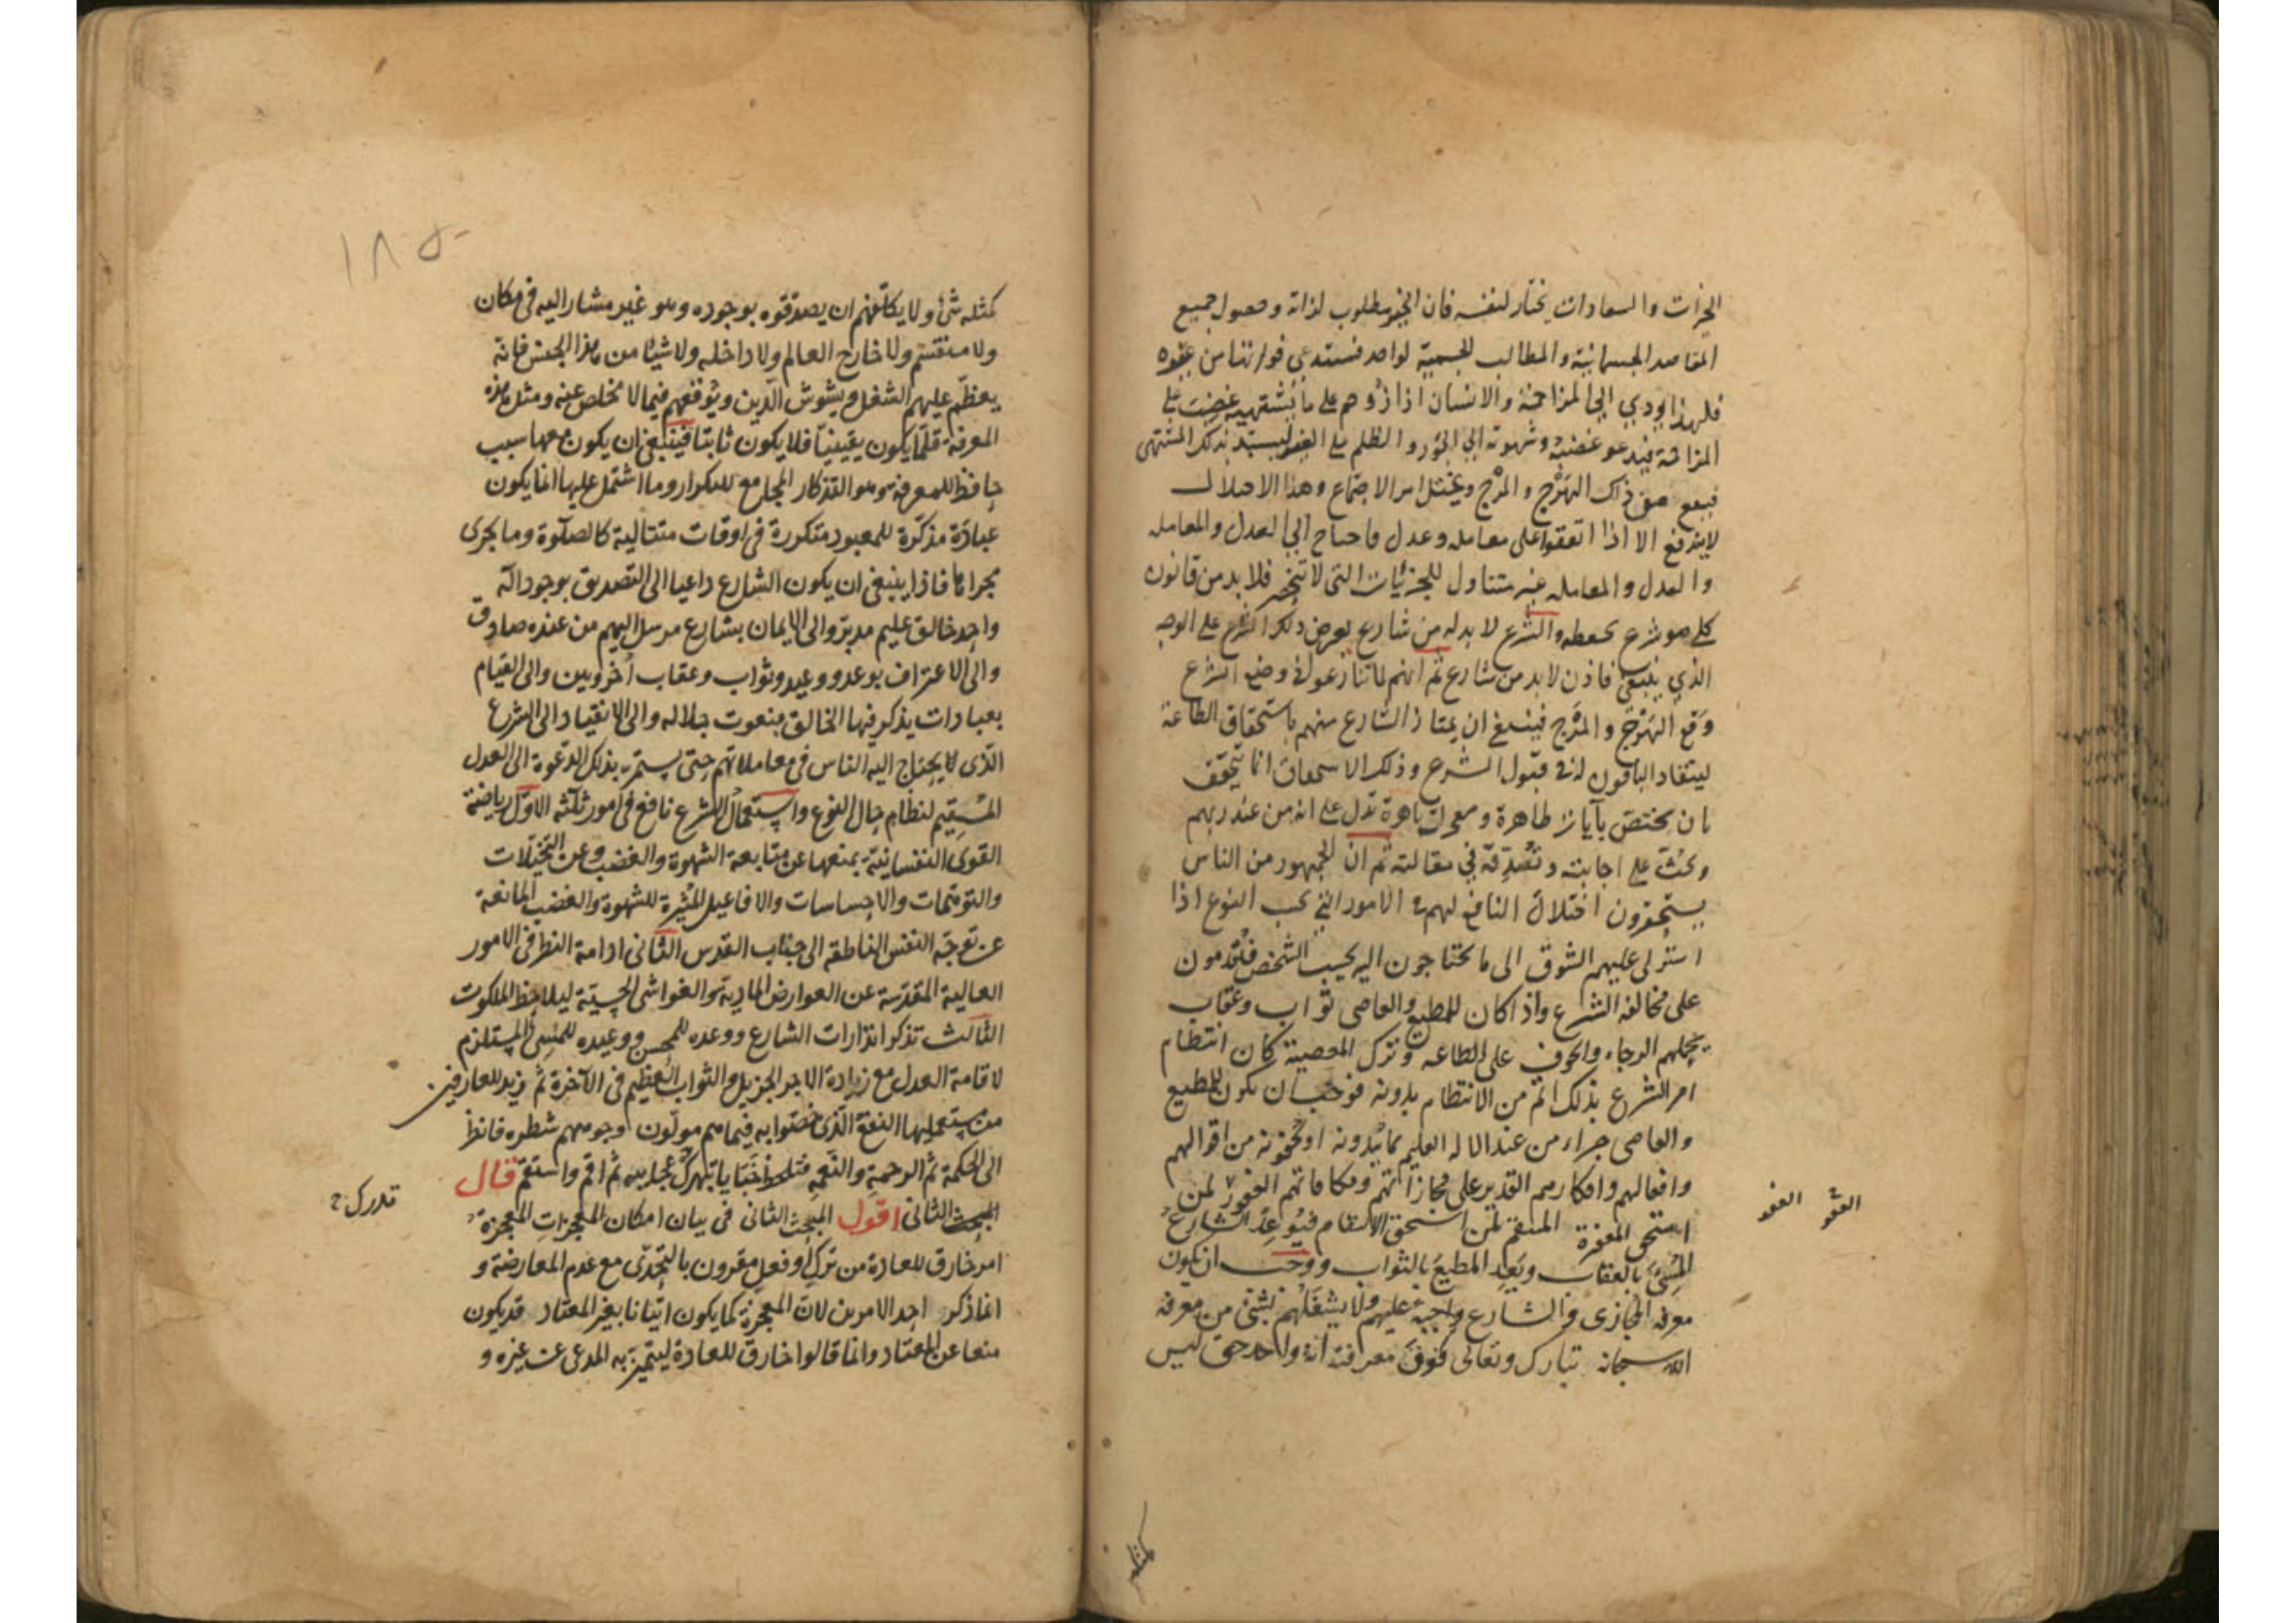 الخيرات والسعادات يختار لنفسه فان الخير مطلوب لذاته وحصول جميع
المقاصد الجسمانية والمطالب الحسية لواحد فستدعي فواتها من غيره
فلهذا يودي الى المزاحمة والانسان اذا زوحم على ما يشتهيه غضب على
المزاحمة فيدعو غضبه وشهوته الى الجور والظلم على الغير ليستبد بذلك المشتهى
فيقع من ذلك الهرج والمرج ويختل امر الاجتماع وهذا الاختلال
لا يندفع الا اذا اتفقوا على معامله وعدل فاحتاج الى العدل والمعامله
والعدل والمعامله غير متناول للجزئيات التى لا تنحصر فلا بد من قانون
كلى هو شرع يحفظه والشرع لا بد له من شارع يفرض ذلك الشرع على الوجه
الذي ينبغي فاذن لا بد من شارع ثم انهم لما تنازعوا في وضع الشرع
وقع الهرج والمرج فينبغي ان يمتاز الشارع منهم باستحقاق الطاعة
لينقاد الباقون له في قبول الشرع وذلك الاستحقاق انما يتحقق
بان يختص بآيات ظاهرة ومعجزات باهرة تدل على انه من عند ربهم
وتحث على اجابته وتصدقه في مقالته ثم ان الجمهور من الناس
يستحقرون اختلال النافع لهم في الامور التي بحسب النوع اذا
استولى عليهم الشوق الى ما يحتاجون اليه بحسب الشخص فيقدمون
على مخالفة الشرع واذا كان للمطيع والعاصى ثواب وعقاب
يحملهم الرجاء والخوف على الطاعه وترك المعصية كان انتظام
امر الشرع بذلك اتم من الانتظام بدونه فوجب ان يكون للمطيع
والعاصى جزاء من عند الاله العليم بما يبدونه او يخفونه من اقوالهم
وافعالهم وافكارهم القدير على مجازاتهم ومكافاتهم الغفور لمن
استحق المغفرة المنتقم لمن استحق الانتقام فيوعد الشارع
المسئ بالعقاب ويعد المطيع بالثواب ووجب ان يكون
معرفه المجازى والشارع واجبة عليهم ولا يشغلهم بشئ من معرفه
الله سبحانه تبارك وتعالى فوق معرفته انه واحد حق ليس
كمثله
كمثله شئ ولا يكلفهم ان يصدقوه بوجوده وهو غير مشار اليه فى مكان
ولا منقسم ولا خارج العالم ولا داخله ولا شيئا من هذا الجنس فانه
يعظم عليهم الشغل ويشوش الدين ويوقعهم فيما لا مخلص عنه ومثل هذه
المعرفة قلما يكون يقينيا فلا يكون ثابتا فينبغى ان يكون معها سبب
حافظ للمعرفة وهو التذكار المجامع للتكرار وما اشتمل عليها انما يكون
عبادة مذكرة للمعبود متكررة فى اوقات متتالية كالصلوة وما يجرى
مجراها فاذا ينبغى ان يكون الشارع داعيا الى التصديق بوجود اله
واحد خالق عليم مدبر والى الايمان بشارع مرسل اليهم من عنده صادق
والى الاعتراف بوعد ووعيد وثواب وعقاب أخرويين والى القيام
بعبادات يذكر فيها الخالق بنعوت جلاله والى الانقياد الى الشرع
الذى يحتاج اليه الناس فى معاملاتهم حتى يستمر بذلك الدعوة الى العدل
المستقيم لنظام حال النوع واستعمال الشرع نافع فى امور ثلثة الاول رياضة
القوى النفسانية بمنعها عن متابعة الشهوة والغضب وعن التخيلات
والتوهمات والاحساسات والافاعيل المثيرة للشهوة والغضب المانعة
عن توجه النفس الناطقة الى جناب القدس الثانى ادامة النظر فى الامور
العالية المقدسة عن العوارض المادية والغواشى الحسية ليلاحظ الملكوت
الثالث تذكر انذارات الشارع ووعده للمحسن ووعيده للمسئ المستلزم
لاقامة العدل مع زيادة الاجر الجزيل والثواب العظيم فى الآخرة ثم يزيد للعارفين
من مستعمليها المنفعة الذى خصوا به فيما هم مولون وجوههم شطره فانظر
الى الحكمة ثم الرحمة والنعمة فتلحظ جنابا يبهرك عجايبه ثم اقم واستقم قال
المبحث الثانى اقول المبحث الثانى فى بيان امكان المعجزات المعجزة
امر خارق للعادة من ترك او فعل مقرون بالتحدى مع عدم المعارضة و
انما ذكر احد الامرين لان المعجزة كما يكون اتيانا بغير المعتاد قد يكون
منعا عن المعتاد وانما قالوا خارق للعادة ليتميز به المدعى عن غيره و
١٨٥